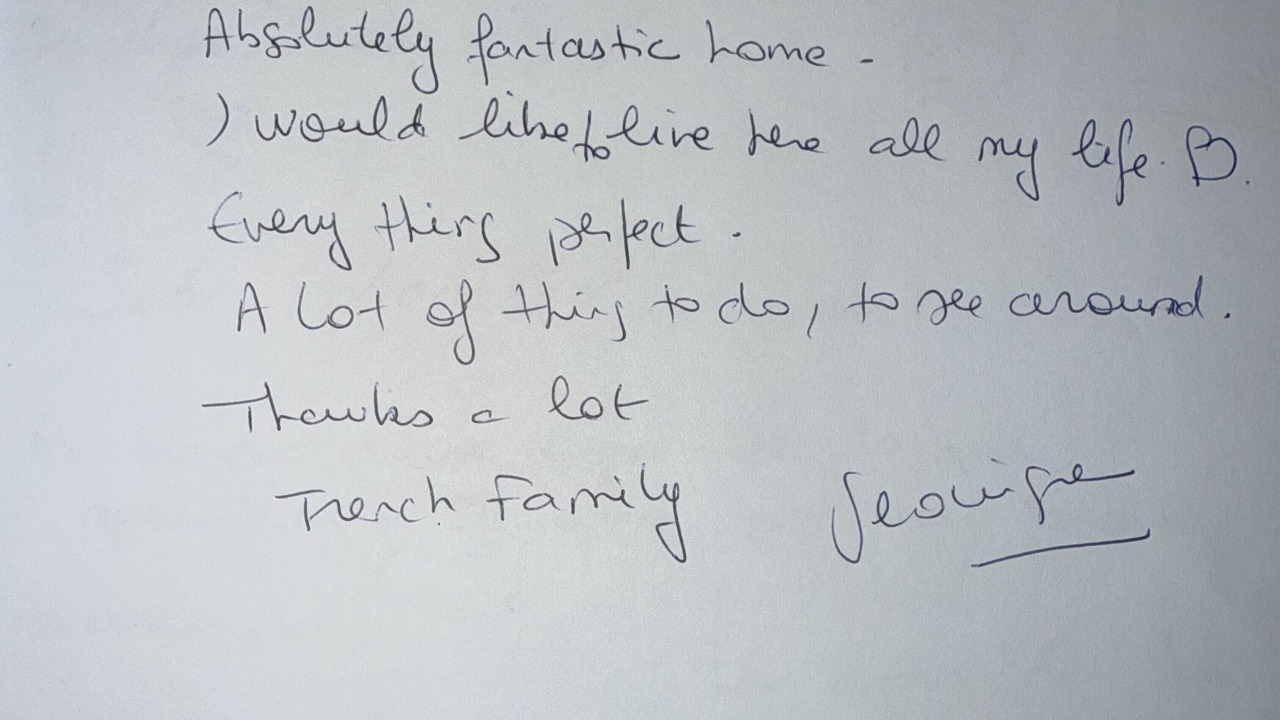 Absolutely fantastic home.
I would like to live here all my life.
Every thing perfect.
A lot of thing to do, to see around.
Thanks a lot
French Family